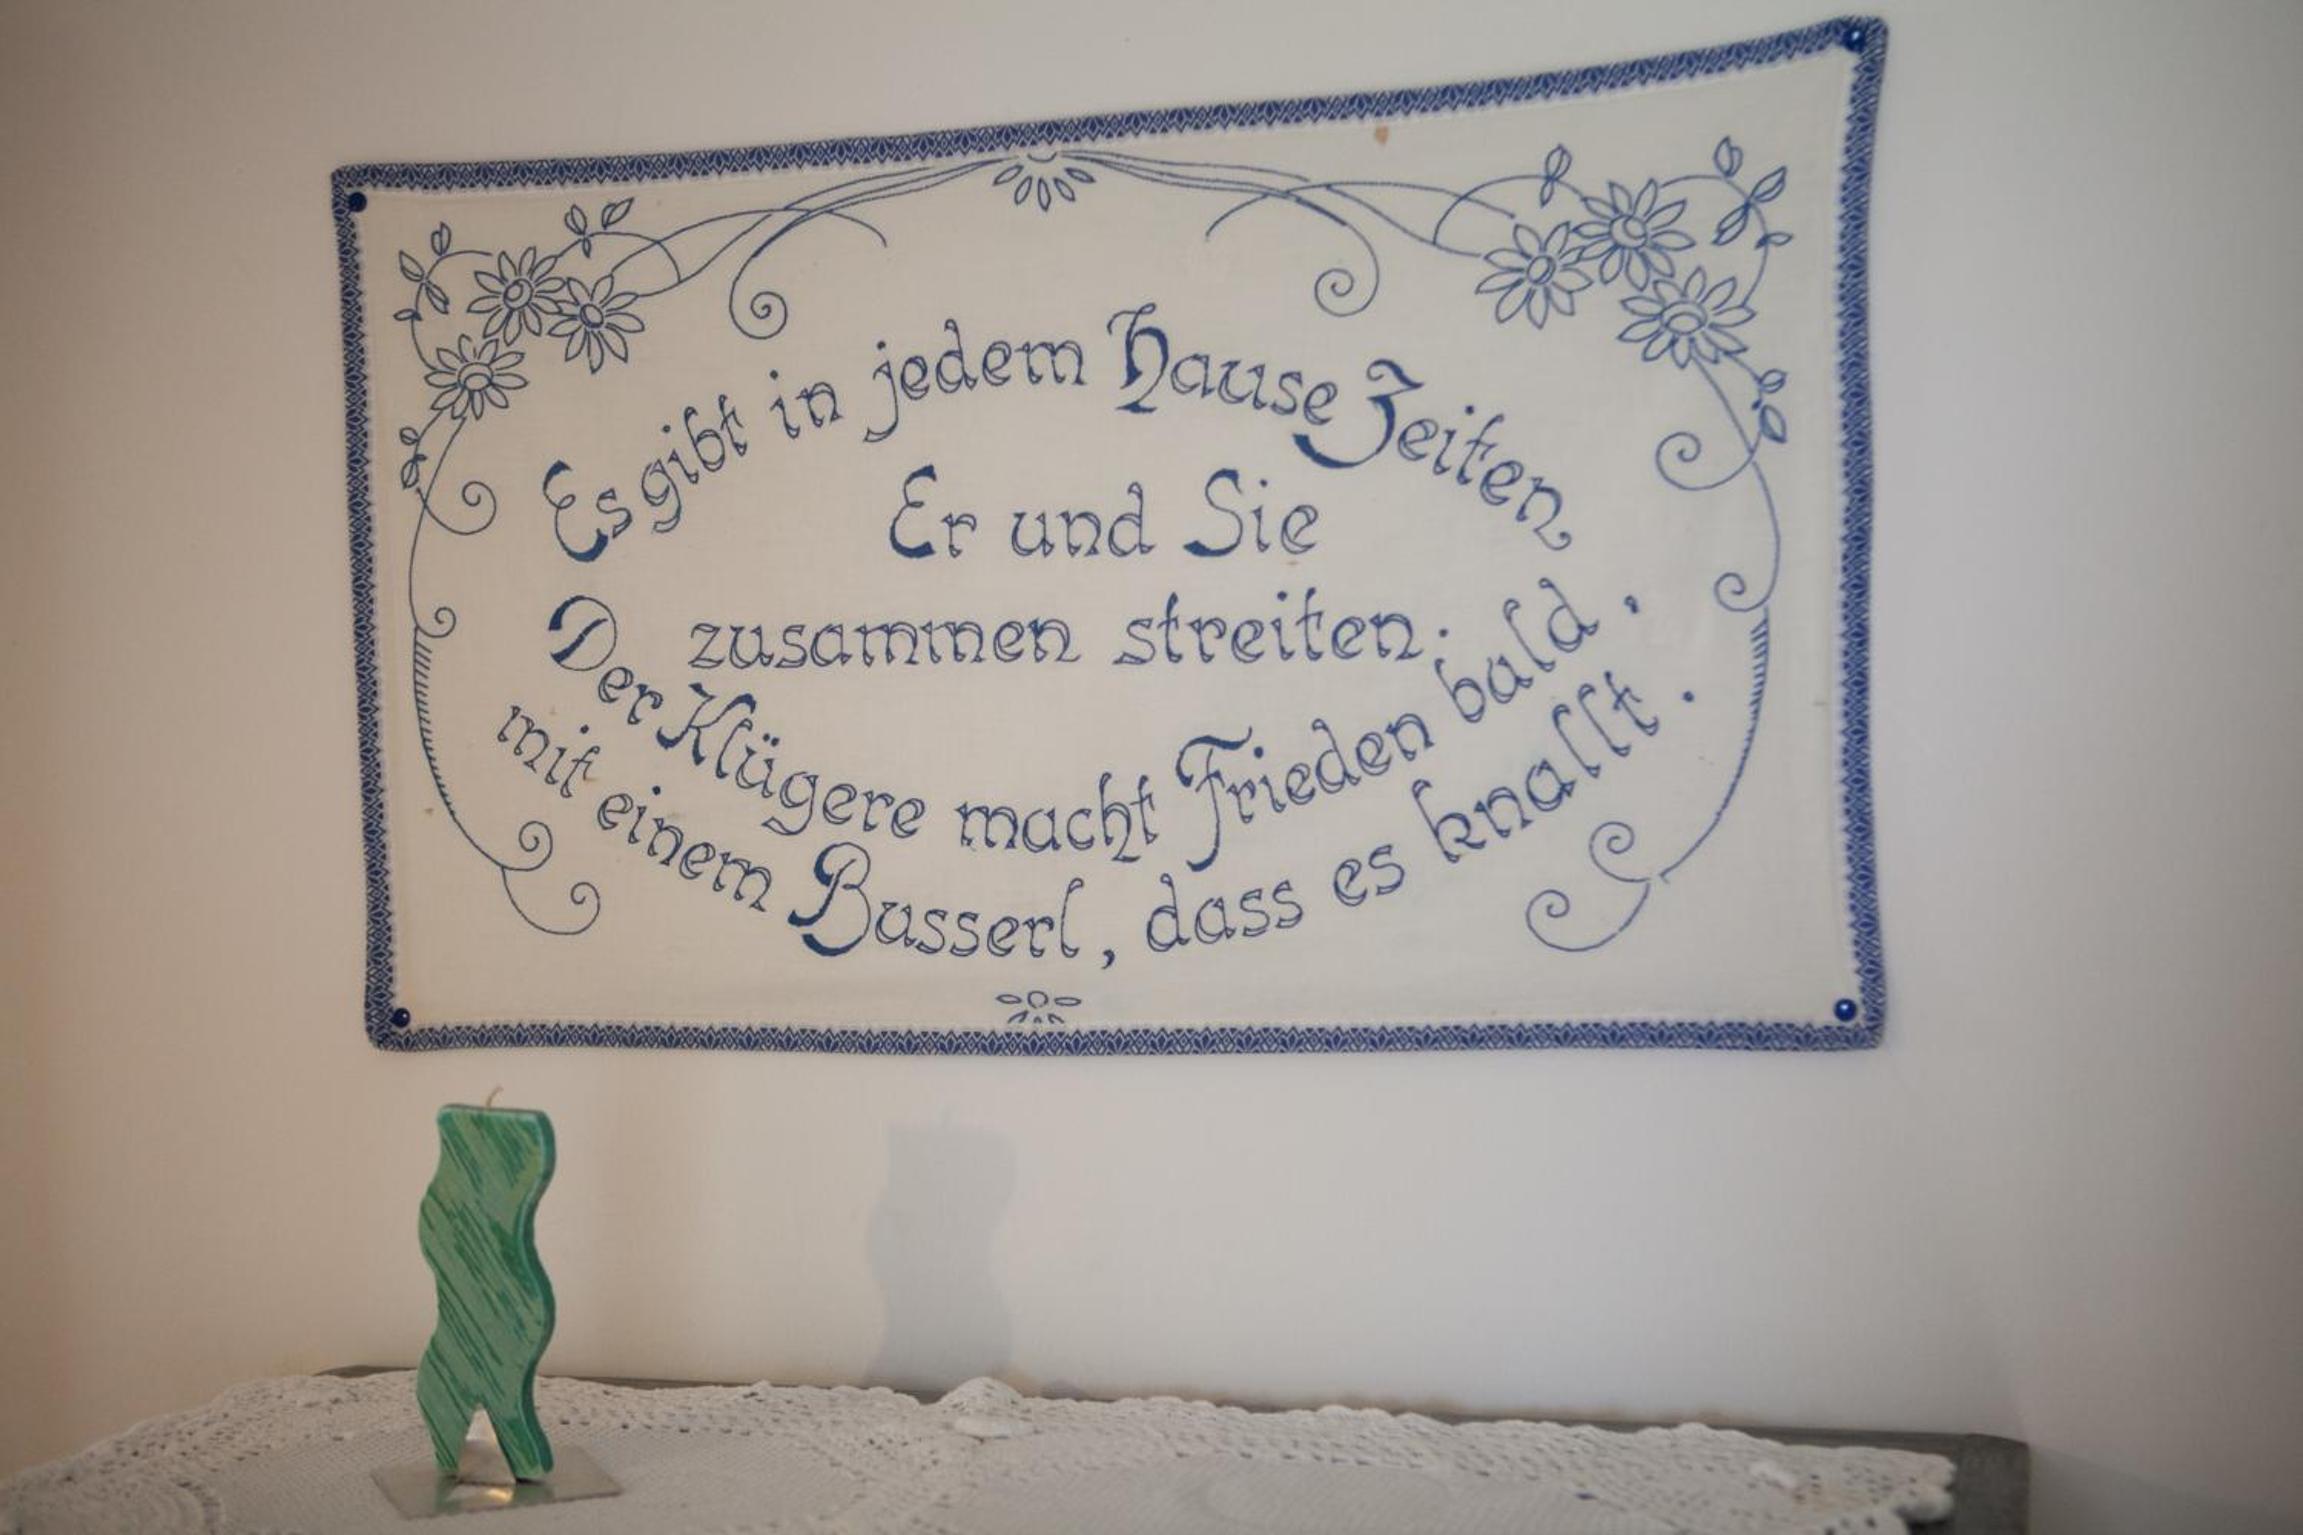 Es gibt in jedem Hause Zeiten
Er und Sie
zusammen streiten.
Der Klügere macht Frieden bald.
mit einem Busserl, dass es knallt.